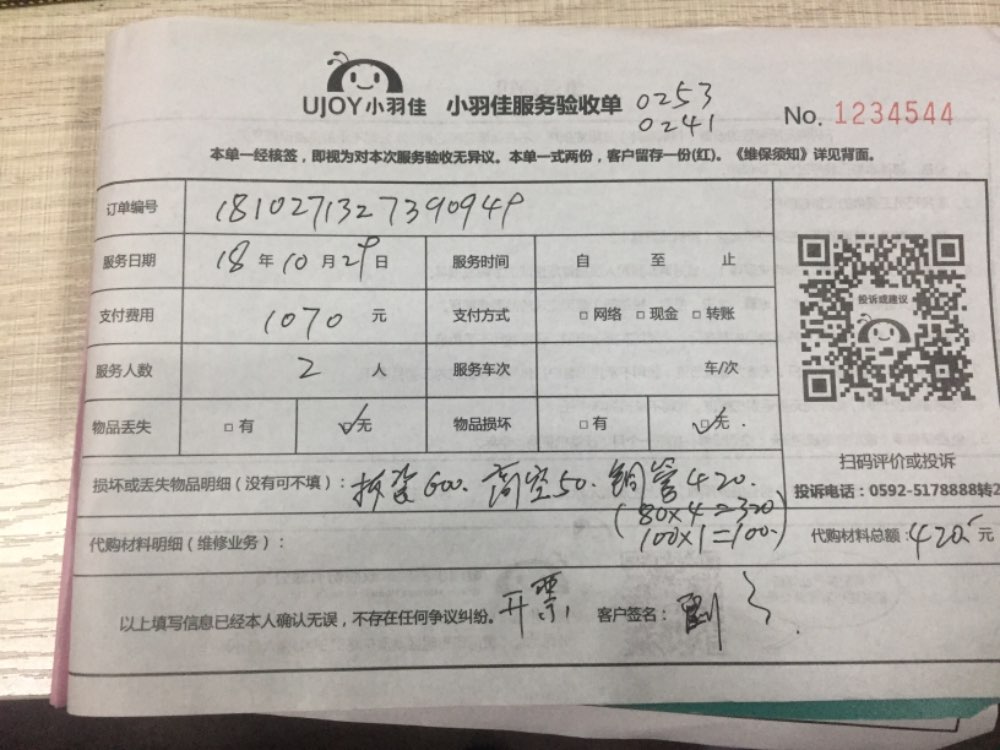 UJOY小羽佳 小羽佳服务验收单 0253
0241
No. 1234544
本单一经核签，即视为对本次服务验收无异议。本单一式两份，客户留存一份(红)。《维保须知》详见背面。
订单编号 1810271327390949
服务日期 18 年 10 月 29 日 服务时间 自 至 止
投诉或建议
支付费用 1070 元 支付方式 □网络 □现金 □转账
服务人数 2 人 服务车次 车/次
物品丢失 □有 ☑无 物品损坏 □有 ☑无
扫码评价或投诉
损坏或丢失物品明细（没有可不填）： 拆装600. 高空50. 铜管420.
投诉电话：0592-5178888转2
(80×4=320
100×1=100)
代购材料明细（维修业务）： 代购材料总额：420 元
以上填写信息已经本人确认无误，不存在任何争议纠纷。 开票 客户签名： 刘